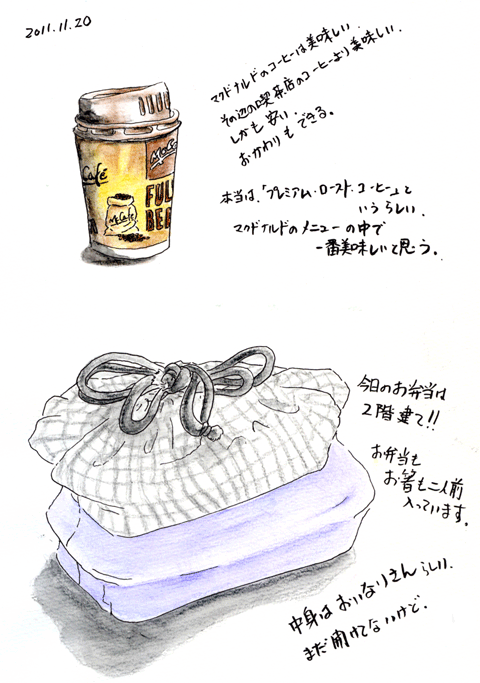 2011.11.20
マクドナルドのコーヒーは美味しい.
その辺の喫茶店のコーヒーより美味しい.
しかも安い.
おかわりもできる。
本当は、「プレミアム・ローストコーヒー」と
いうらしい.
マクドナルドのメニューの中で
一番美味しいと思う。
McCafé
Café
FUL
BEA
McCafé
今日のお弁当は
2階建て!!
お弁当も
お箸も二人前
入っています。
中身はおいなりさんらしい.
まだ開けてないけど.